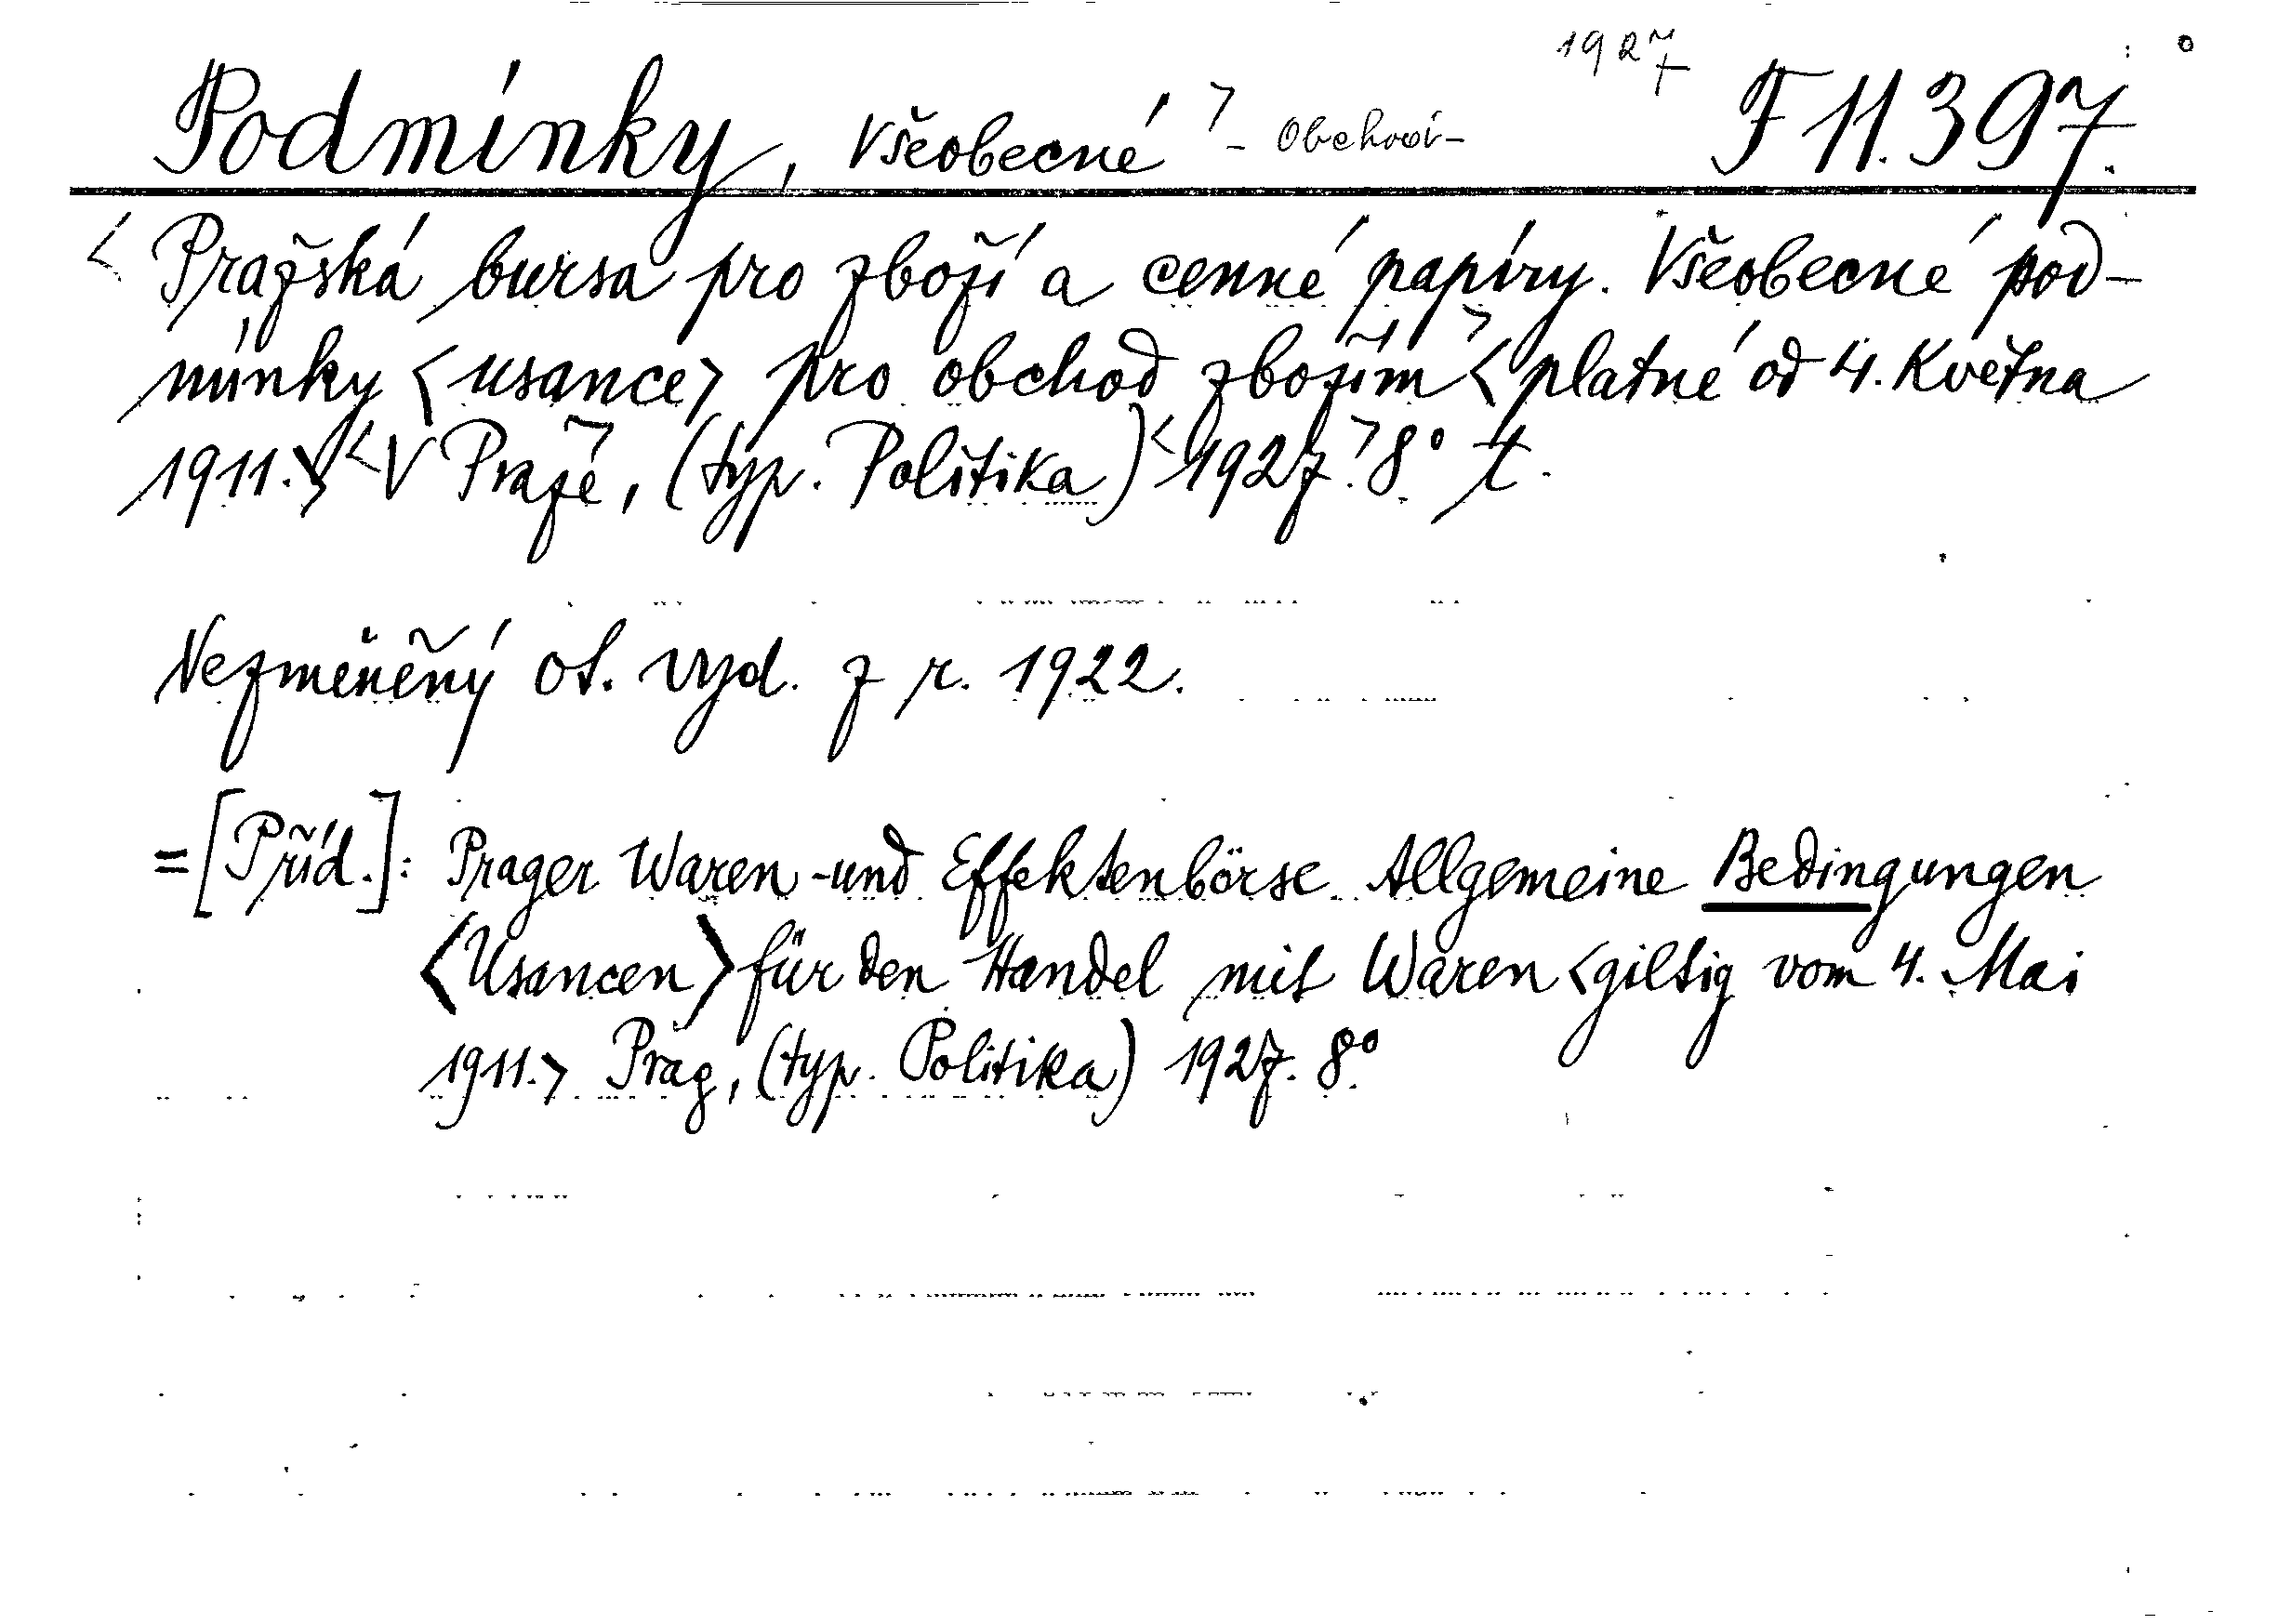 1927
Podmínky, Všeobecné > - Obchod - F 11.397.
< Pražská bursa pro zboží a cenné papíry. Všeobecné pod-
mínky <usance> pro obchod zbožím > <platné od 4. Května
1911.> < V Praze, > (typ. Politika) < 1927. > 8° t.
Nezměněný ot. vyd. z r. 1922.
= [Příd.]: Prager Waren -und Effektenbörse. Allgemeine Bedingungen
<Usancen> für den Handel mit Waren <giltig vom 4. Mai
1911.> Prag, (typ. Politika) 1927. 8°.